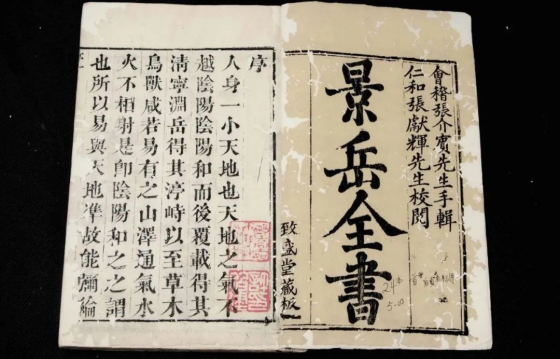 會稽張介賓先生手輯
仁和張獻輝先生校閱
景岳全書
致盛堂藏板
24本
5-00
序
人身一小天地也天地之氣不
越陰陽陰陽和而後覆載得其
清寧淵岳得其渟峙以至草木
鳥獸咸若易有之山澤通氣水
火不相射是卽陰陽和之之謂
也所以易與天地準故能彌綸